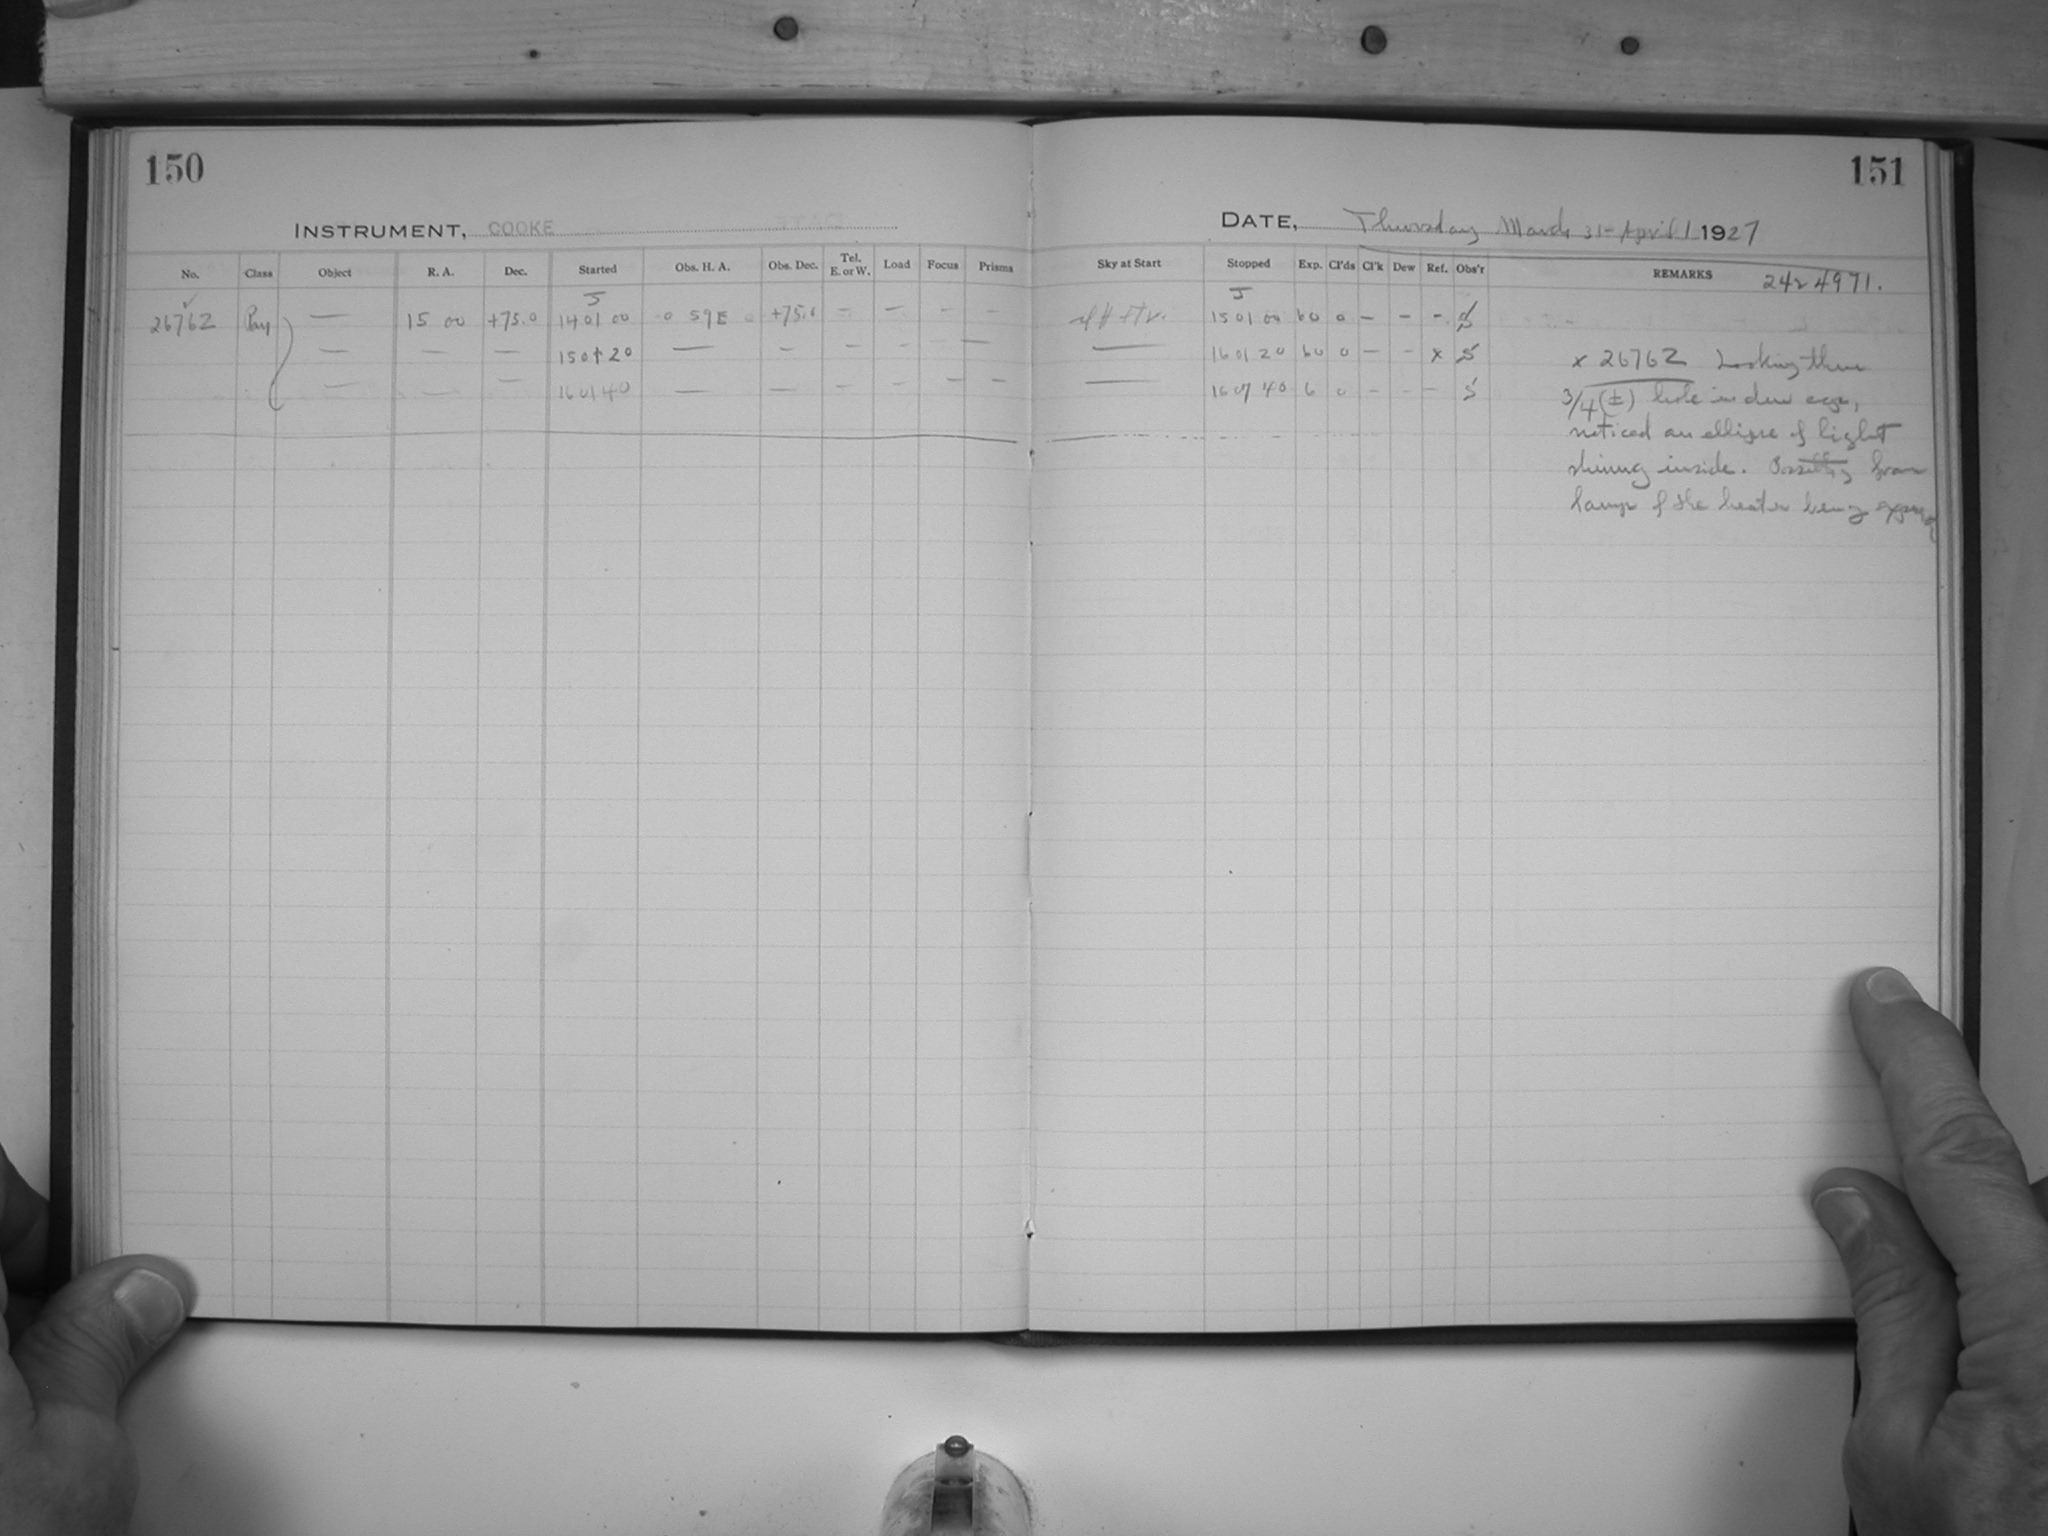 150
INSTRUMENT, COOKE
No. Class Object R. A. Dec. Started Obs. H. A. Obs. Dec. Tel. E. or W. Load Focus Prisms
J
26762 — 15 00 +75.0 14 01 00 0 59 E +75.0 — — — —
— — — 15 01 20 — — — — — —
— — — 16 01 40 — — — — — —
151
DATE, Thursday March 31 - April 1 1927
Sky at Start Stopped Exp. Cl'ds Cl'k Dew Ref. Obs'r REMARKS 242 4971.
J
15 01 00 60 0 — — — S
— 16 01 20 60 0 — — x S
— 16 07 40 6 0 — — — S
x 26762 Looking thru
3/4 (±) hole in dew cap,
noticed an ellipse of light
shining inside. Possibly from
lamp of the heater being